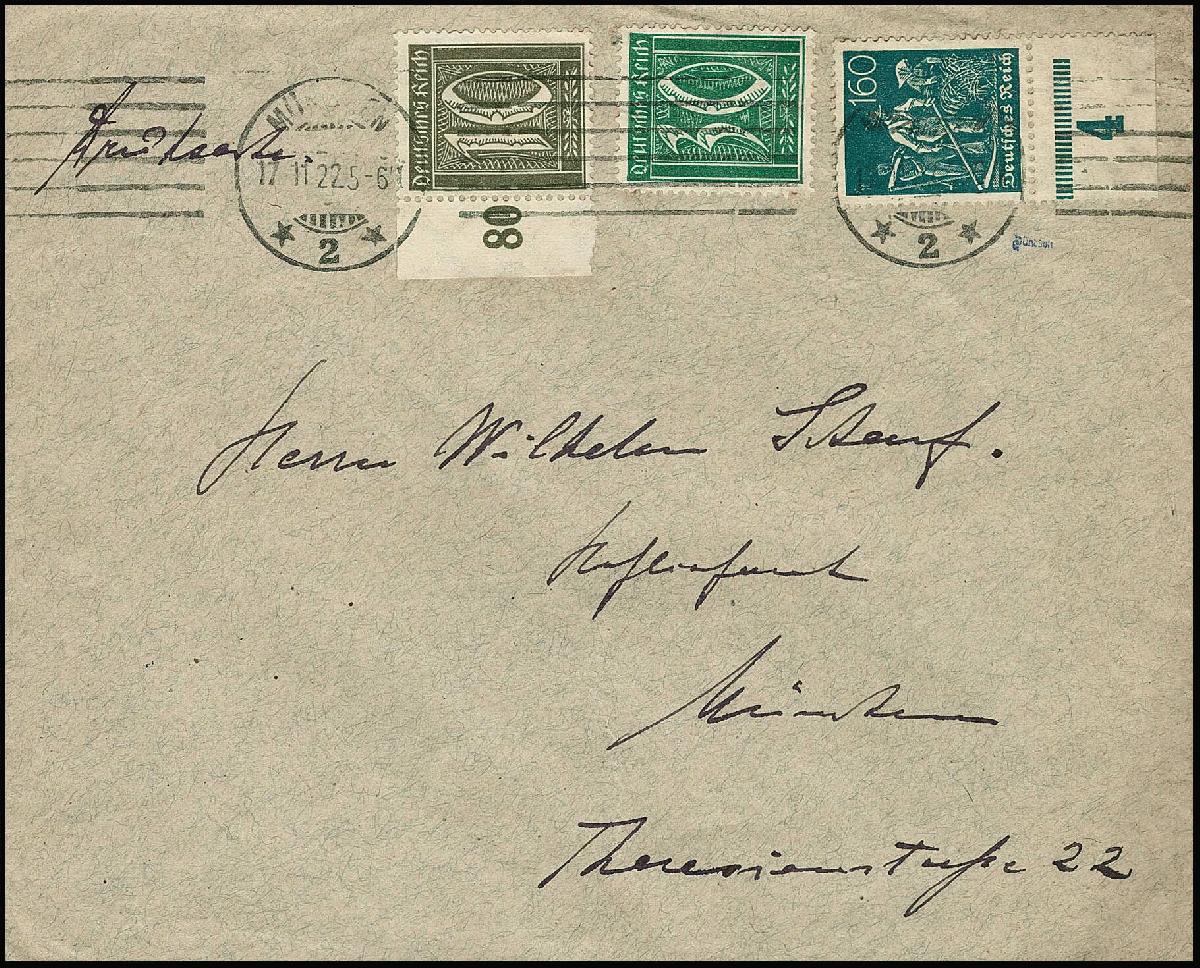 Drucksache.
MÜNCHEN
17 11 22 5-6
★ 2 ★
Deutsches Reich
10
80
Deutsches Reich
30
160
Deutsches Reich
4
2
Herrn Wilhelm
München
Theresienstraße 22